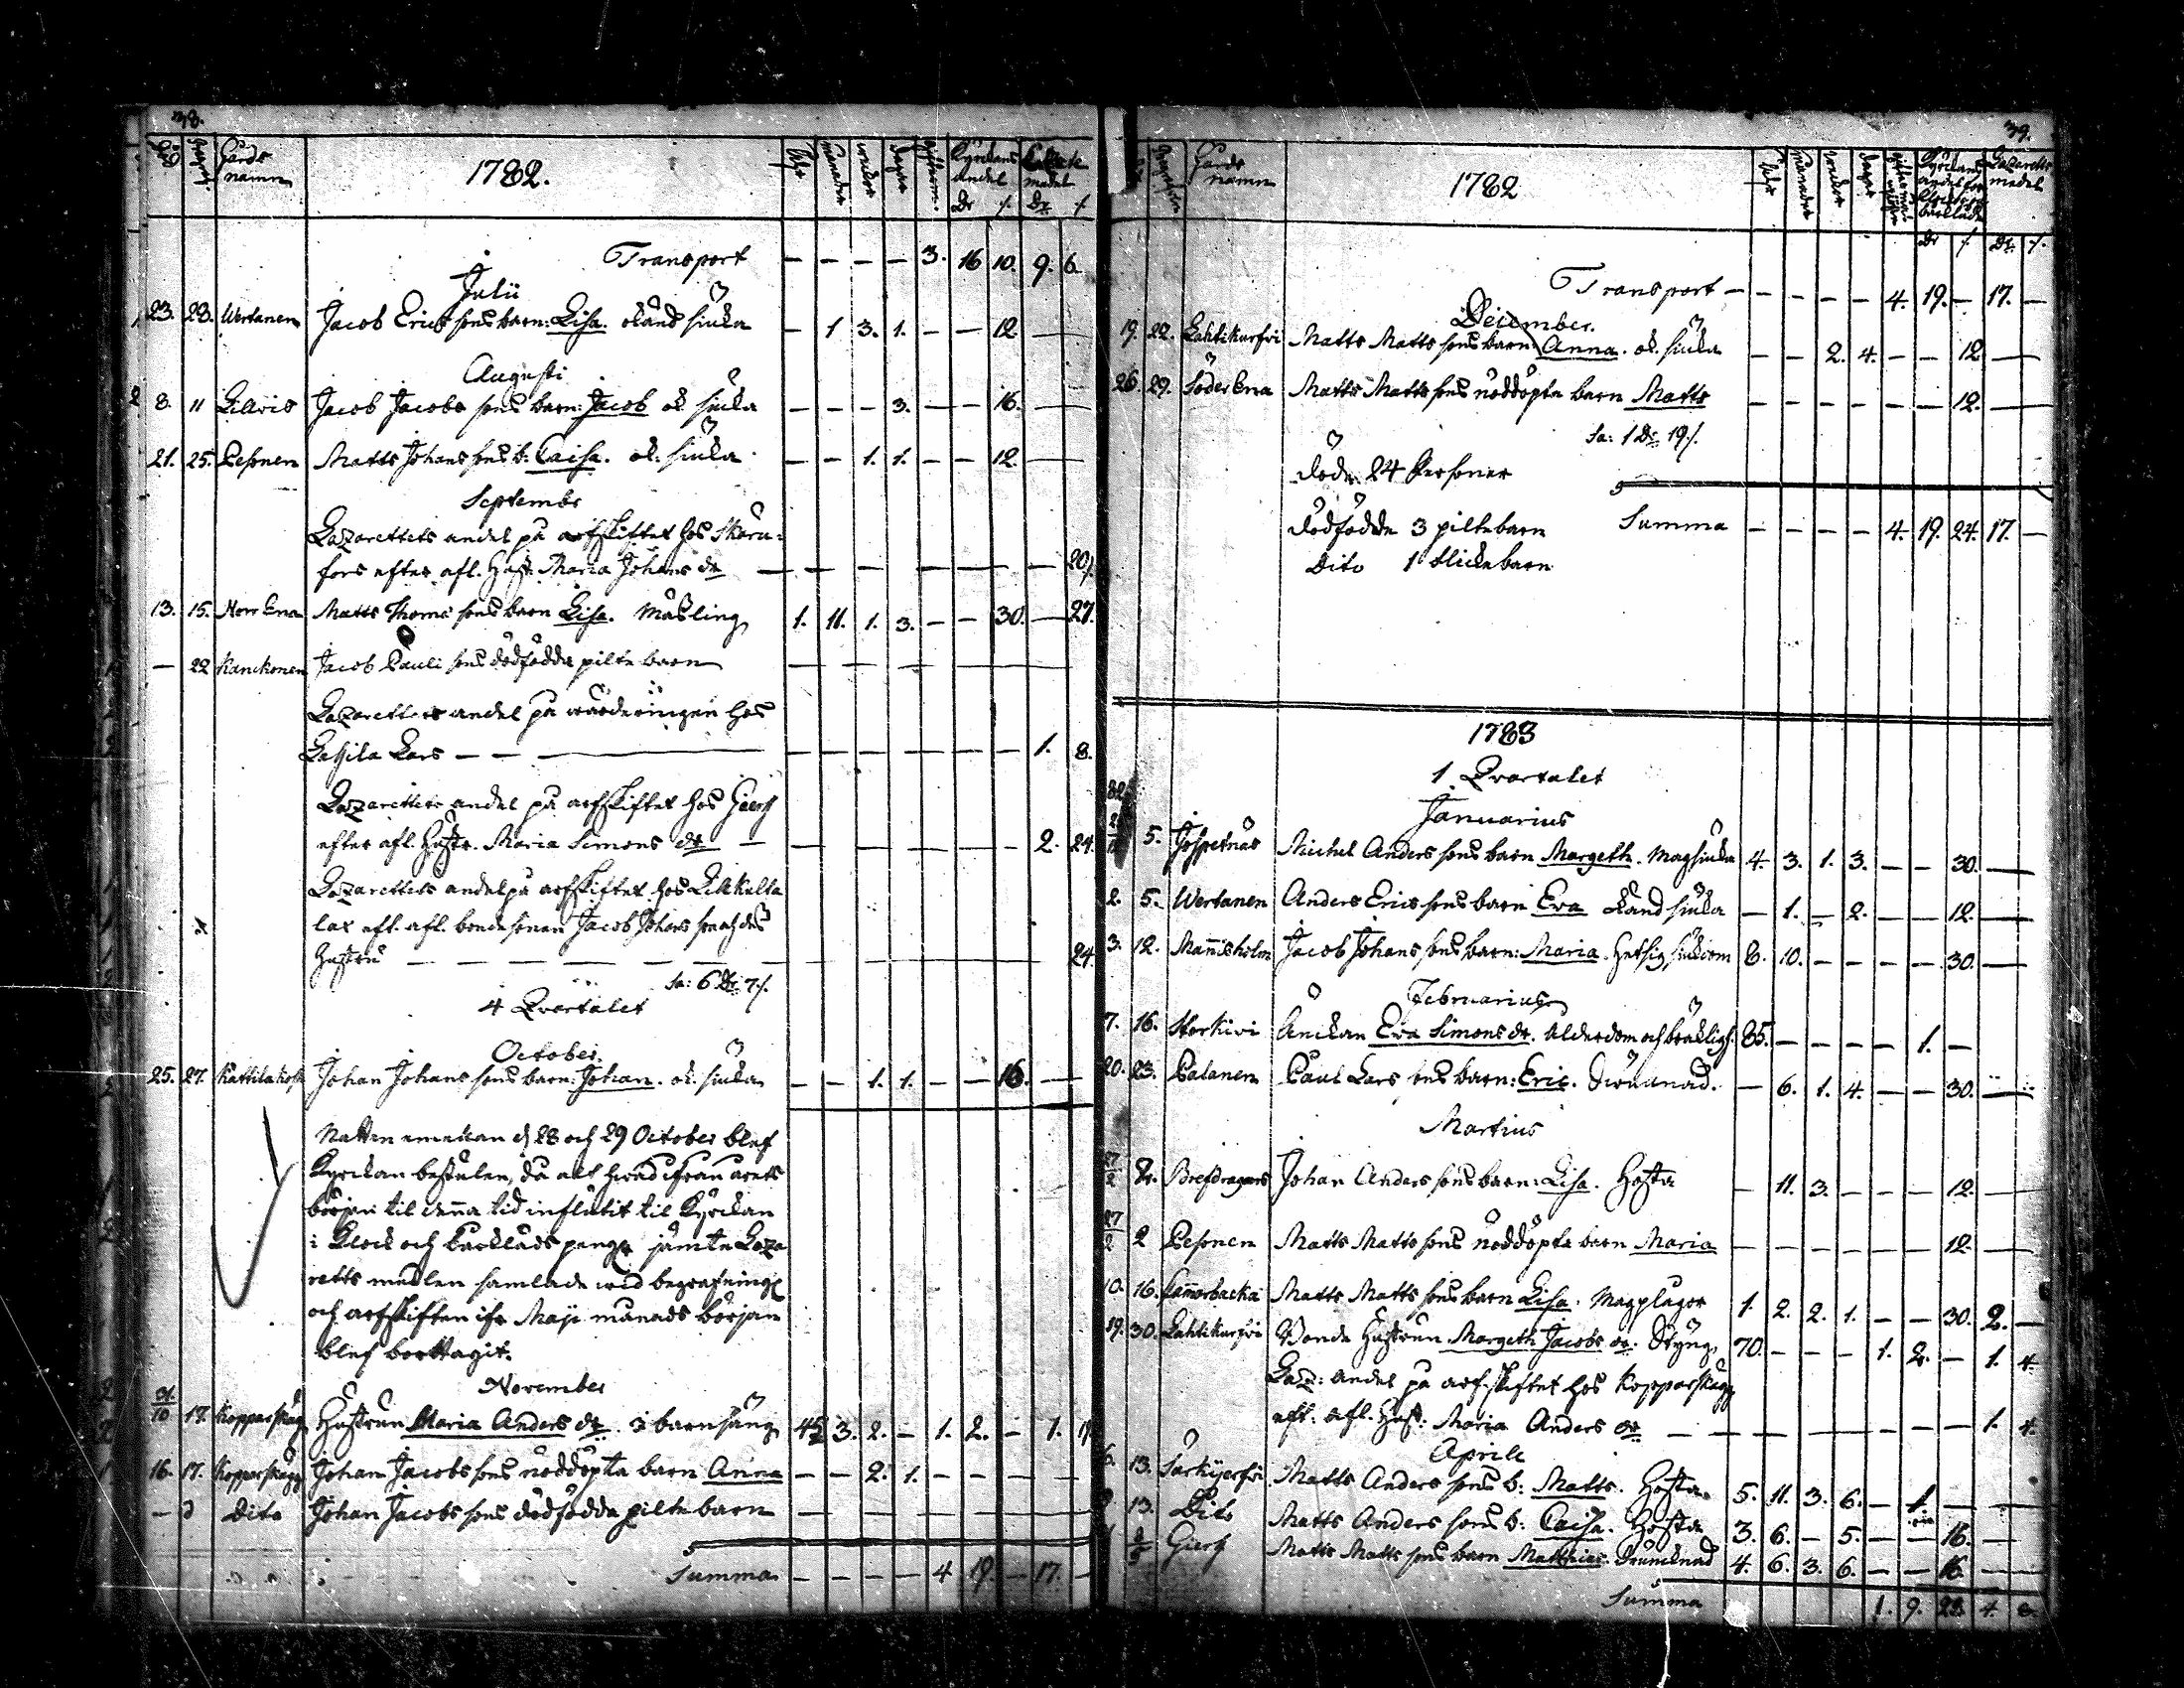 38.
Gårds namn 1782. åhr månader wekor dagar Kyrckans andel medel
Dr /. Dr /.
Transport — — — — 3. 16 10. 9. 6.
Julii
23. 28. Wertanen Jacob Ericssons barn: Lisa. okänd siuka — 1 3. 1. — — 12. —
Augusti
8. 11 Lillvis Jacob Jacobs sons barn: Jacob ok siuka — — — 3. — — 16. —
21. 25. Pesonen Matts Johans sons b: Caisa. ok: siuka — — 1. 1. — — 12. —
Septembr
Lazarettets andel på arfskiftet hos Skaru=
fors efter afl. Hust: Maria Johans dr — — — — — — — 20/.
13. 15. Norr Ena Matts Thomæ sons barn Lisa. Mäsling 1. 11. 1. 3. — — 30. — 27.
— 22 Kanckonen Jacob Pauli sons dödfödda pilte barn — — — —
Lazarettets andel på wärderingen hos
Lassila Lars — — — — — — — — 1. 8.
Lazarettets andel på arfskiftet hos Giers
efter afl. Hustr. Maria Simons dr — — — — — — 2. 24.
Lazarettets andel på arfskiftet hos Lillkulta
lax eft. afl. bondesonen Jacob Johans son och des
Hustru — — — — — — — 24.
Sa: 6 Dr 7/.
4 Qvartalet
October.
25. 27. Kattilakoski Johan Johans sons barn: Johan. ok: siuka — — 1. 1. — — 16. —
Natten emellan d 28 och 29 October blef
Kyrckan bestulen, då alt hwad ifrån årets
början til denna tid influtit til Kyrckan
i Klock och barklädspengr jämte Laza
retts medlen samlade wid begrafningr
och arfskiften ifr Maji månads början
blef borttagit.
November
31/10 17. Kopparskägg Hustrun Maria Anders dr. i barnsäng 45 3. 2. — 1. 2. — 1. 17
16. 17. Kopparskägg Johan Jacobs sons nöddöpta barn Anna — — 2. 1. — — — —
— d Dito Johan Jacobs sons dödfödda pilte barn — — — —
Summa — — — — 4 19. — 17. —
39.
Gårds namn 1782 åhr månader wekor dagar Kyrckans andel Lazaretts medel
Dr /. Dr /.
Transport — — — — — 4. 19. — 17. —
December.
19. 22. Lahtikurfvi Matts Matts sons barn Anna. ok. siuka — — 2. 4. — — 12. —
26. 29. Söder Ena Matts Matts sons nöddöpta barn Matts — — — — — — 12. —
Sa: 1 Dr 19/.
döde 24 Personer
dödfödda 3 piltebarn Summa — — — — 4. 19. 24. 17. —
Dito 1 flickebarn
1783
1 Qvartalet
Januarius
5. Michel Anders sons barn Margeth. Magsiuka 4. 3. 1. 3. — — 30. —
2. 5. Wertanen Anders Erics sons barn Eva okänd siuka — 1. — 2. — — 12. —
3. 12. Mannisholm Jacob Johans sons barn: Maria. Hetsig siukdom 8. 10. — — — — 30. —
Februarius
7. 16. Storkivi Änckan Eva Simons dr. Ålderdom och bräcklig. 85. — — — — 1. —
20. 23. Palanen Paul Lars sons barn: Eric. — 6. 1. 4. — — 30. —
Martius
27/2 2. Brefdragars Johan Anders sons barn: Lisa. Hosta — 11. 3. — — — 12. —
27/2 2 Pesonen Matts Matts sons nöddöpta barn Maria — — — — — — 12. —
10. 16. Kamorbacka Matts Matts sons barn Lisa. Magplågor 1. 2. 2. 1. — — 30. 2. —
19. 30. Lahtikurfvi Bonde Hustrun Margeth Jacobs dr. Styng 70. — — — 1. 2. — 1. 4.
Laz: andel på arfskiftet hos Kopparskägg
eft: afl. Hust: Maria Anders dr — — — — — — — 1. 4.
Aprill
6. 13. Särkijerfvi Matts Anders sons b: Matts. Hosta 5. 11. 3. 6. — 1. — —
13. Dito Matts Anders sons b: Caisa. Hosta 3. 6. — 5. — — 16. —
Giers Matts Matts sons barn Matthias. Drunknad 4. 6. 3. 6. — — 16. — —
Summa 1. 9. 28. 4. 8.